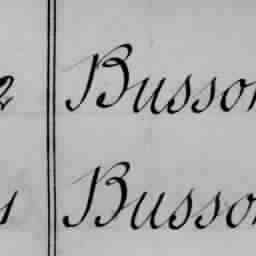 2 Busson
1 Busson